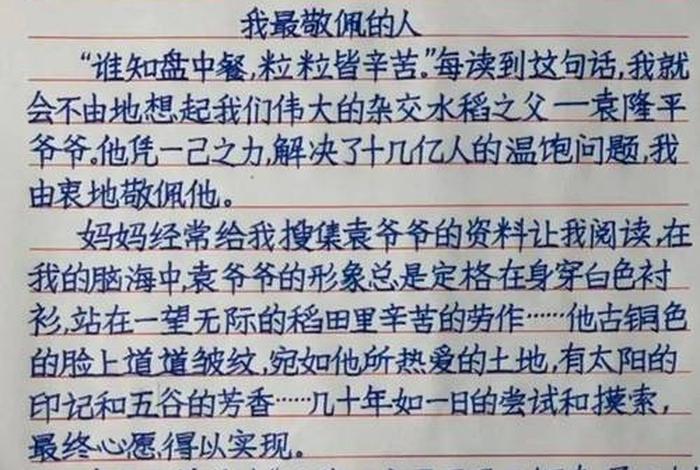 我最敬佩的人
“谁知盘中餐,粒粒皆辛苦。”每读到这句话,我就
会不由地想起我们伟大的杂交水稻之父一袁隆平
爷爷。他凭一己之力,解决了十几亿人的温饱问题,我
由衷地敬佩他。
妈妈经常给我搜集袁爷爷的资料让我阅读,在
我的脑海中,袁爷爷的形象总是定格在身穿白色衬
衫,站在一望无际的稻田里辛苦的劳作……他古铜色
的脸上道道皱纹,宛如他所热爱的土地,有太阳的
印记和五谷的芳香……几十年如一日的尝试和摸索,
最终心愿得以实现。